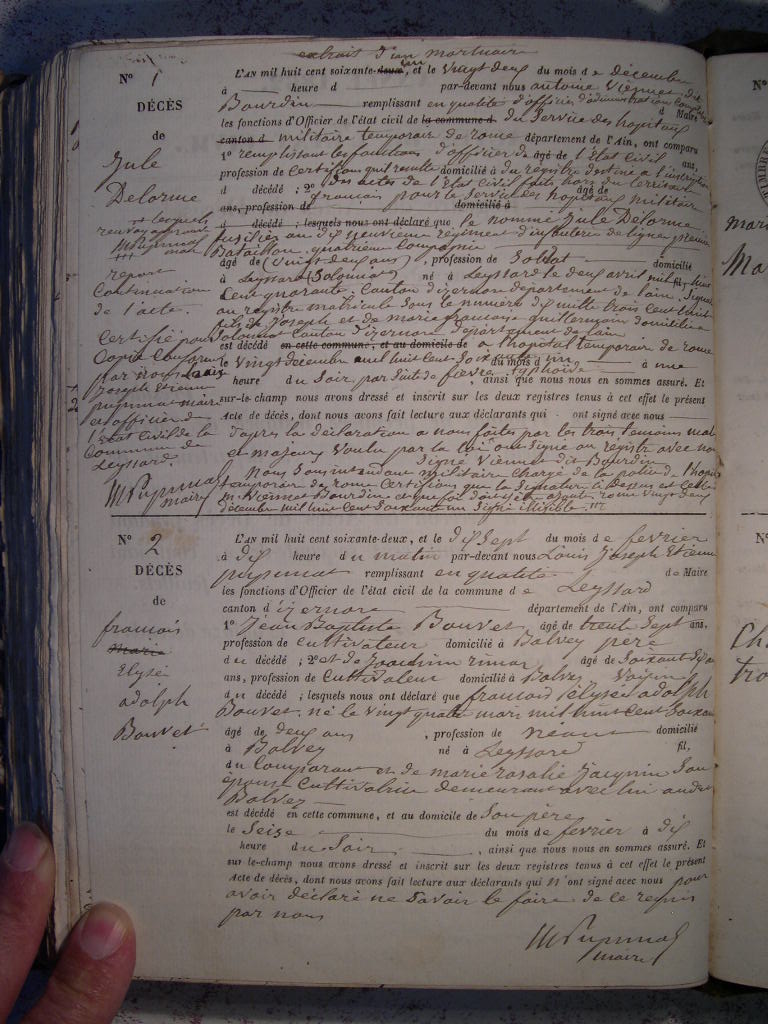 extrait d'un mortuaire
N° 1
DÉCÈS
de
Jule
Delorme
L'AN mil huit cent soixante-deux un, et le vingt deux du mois de décembre
à heure d par-devant nous antoine Viennet dit
Bourdin remplissant en qualité d'officier d'administration comptable d Maire
les fonctions d'Officier de l'état civil de la commune d du Service des hopitaux
canton d militaire temporaire de rome département de l'Ain, ont comparu
1° remplissant les fonctions d'officier de l'état Civil âgé de ans,
profession de certifions qu'il resulte domicilié à du registre destiné a l'inscription
d décédé ; 2° des actes de l'état Civil faits hors du territoire âgé de
ans, profession de français pour le service des hopitaux militaire domicilié à
d décédé ; lesquels nous ont déclaré que le nommé Jule Delorme
fusilier au dix neuvieme régiment d'infanterie de ligne premier
Bataillon quatrieme Compagnie
âgé de (vingt deux ans), profession de Soldat domicilié
à Leyssard (Solomiat) né à Leyssard le deux avril mil huit fil
Cent quarante, Canton d'izernore département de l'ain, Signalé
au registre matricule Sous le numéro dix mille trois cent huit
fils de Joseph et de marie françoise guillermin domiciliés a
Solomiat Canton d'izernore département de l'ain
est décédé en cette commune, et au domicile de a l'hopital temporaire de rome
le vingt décembre mil huit cent Soixante un du mois d à une
heure du Soir par Suite de fièvre typhoïde, ainsi que nous nous en sommes assuré. Et
sur-le-champ nous avons dressé et inscrit sur les deux registres tenus à cet effet le présent
Acte de décès, dont nous avons fait lecture aux déclarants qui ont signé avec nous
d'apres la déclaration a nous faites par les trois temoins males
et majeurs Voulu par la loi ont Signé au régistre avec nous
Signé Viennet dit Bourdin
Nous Sous intendant militaire Chargé de la police de l'hopital
temporaire de rome Certifions que la Signature ci dessus est Celle de
m. Viennet Bourdin et que foi doit y être ajouté rome vingt deux
décembre mil huit Cent Soixante un Signé illisible
et lesquels
renvoy approuvé
report
Continuation
de l'acte.
Certifié pour
Copie Conforme
par nous Louis
Joseph Etienne
puppunat maire
et officier de
l'état Civil de la
Commune de
Leyssard.
maire
N° 2
DÉCÈS
de
francois
Marie
Elysé
adolph
Bouvet
L'AN mil huit cent soixante-deux, et le dix Sept du mois de fevrier
à dix heure du matin par-devant nous Louis Joseph Etienne
puppunat remplissant en qualité de Maire
les fonctions d'Officier de l'état civil de la commune de Leyssard
canton d'izernore département de l'Ain, ont comparu
1° Jean Baptiste Bouvet âgé de trent Sept ans,
profession de cultivateur domicilié à Balvey père
du décédé ; 2° et de Joachim âgé de Soixant Six
ans, profession de Cultivateur domicilié à Balvey Voisin
du décédé ; lesquels nous ont déclaré que francois Elysée adolph
Bouvet né le vingt quatre mars mil huit cent Soixant
âgé de deux ans , profession de néant domicilié
à Balvey né à Leyssard fil,
du Comparant et de marie rosalie Jacquin Son
épouse Cultivatrice demeurant avec lui audit
Balvey
est décédé en cette commune, et au domicile de Son père
le Seise du mois de fevrier à dix
heure du Soir , ainsi que nous nous en sommes assuré. Et
sur-le-champ nous avons dressé et inscrit sur les deux registres tenus à cet effet le présent
Acte de décès, dont nous avons fait lecture aux déclarants qui n'ont signé avec nous pour
avoir déclaré ne Savoir le faire de ce requis
par nous
maire